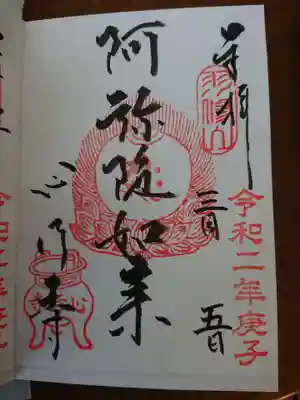 奉拝
令和二年庚子
三月
五日
阿弥陀如来
心行寺